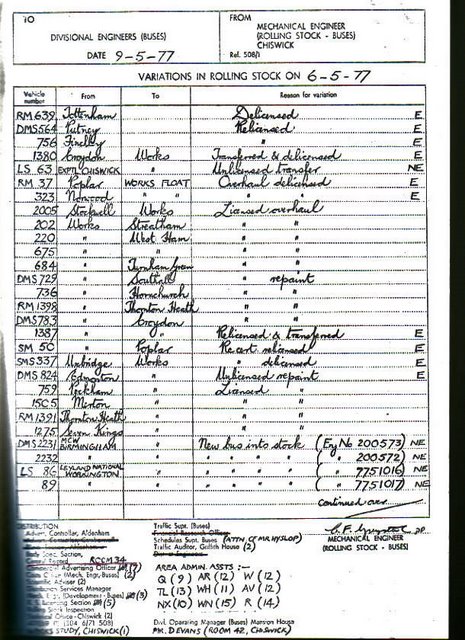 TO
FROM
DIVISIONAL ENGINEERS (BUSES)
MECHANICAL ENGINEER
(ROLLING STOCK - BUSES)
CHISWICK
DATE 9-5-77
Ref. 508/1
VARIATIONS IN ROLLING STOCK ON 6-5-77
Vehicle number From To Reason for variation
RM 639 Tottenham Delicensed E
DMS 564 Putney Relicensed E
756 Finchley " E
1380 Croydon Works Transferred & delicensed E
LS 63 EXPTL CHISWICK " Unlicensed transfer NE
RM 37 Poplar WORKS FLOAT Overhaul delicensed E
323 Norwood " " " " E
2005 Stockwell Works Licensed overhaul
202 Works Streatham " "
220 " West Ham " "
675 " " " "
684 " Turnham Green " "
DMS 729 " Southall " repaint
736 " Hornchurch " "
RM 1398 " Thornton Heath " "
DMS 783 " Croydon " "
1387 " " Relicensed & transferred E
SM 50 " Poplar Recert relicensed E
SMS 337 Uxbridge Works " delicensed E
DMS 824 Edmonton " Unlicensed repaint E
759 Peckham " Licensed "
1505 Merton " " "
RM 1391 Thornton Heath " " "
1275 Seven Kings " " "
DMS 2231 MCW BIRMINGHAM New bus into stock (Eng No 200573) NE
2232 " " " " " ( " 200572) NE
LS 86 LEYLAND NATIONAL WORKINGTON " " " " ( " 7751016) NE
89 " " " " " ( " 7751017) NE
continued over
DISTRIBUTION
Advert. Controller, Aldenham
Body Spec. Section,
General Record ROOM 34
Commercial Advertising Officer (7)
Costs Office (Mech. Engr, Buses) (2)
Adviser (2)
Distribution Services Manager
Mech. Engr. (Development - Buses) (3)
Licensing Section (5)
Rolling Stock Inspection
Office - Chiswick (2)
(104 6/71 508)
WORKS STUDY, CHISWICK (1)
Traffic Supt. (Buses)
Schedules Supt. (Buses) (ATTN. OF MR HYSLOP)
Traffic Auditor, Griffith House (2)
AREA ADMIN. ASSTS :-
Q (9) AR (12) W (12)
TL (13) WH (11) AV (12)
NX (10) WN (15) R (14)
Divl. Operating Manager (Buses) Mansion House
MR. D EVANS (ROOM 42, CHISWICK)
MECHANICAL ENGINEER
(ROLLING STOCK - BUSES)